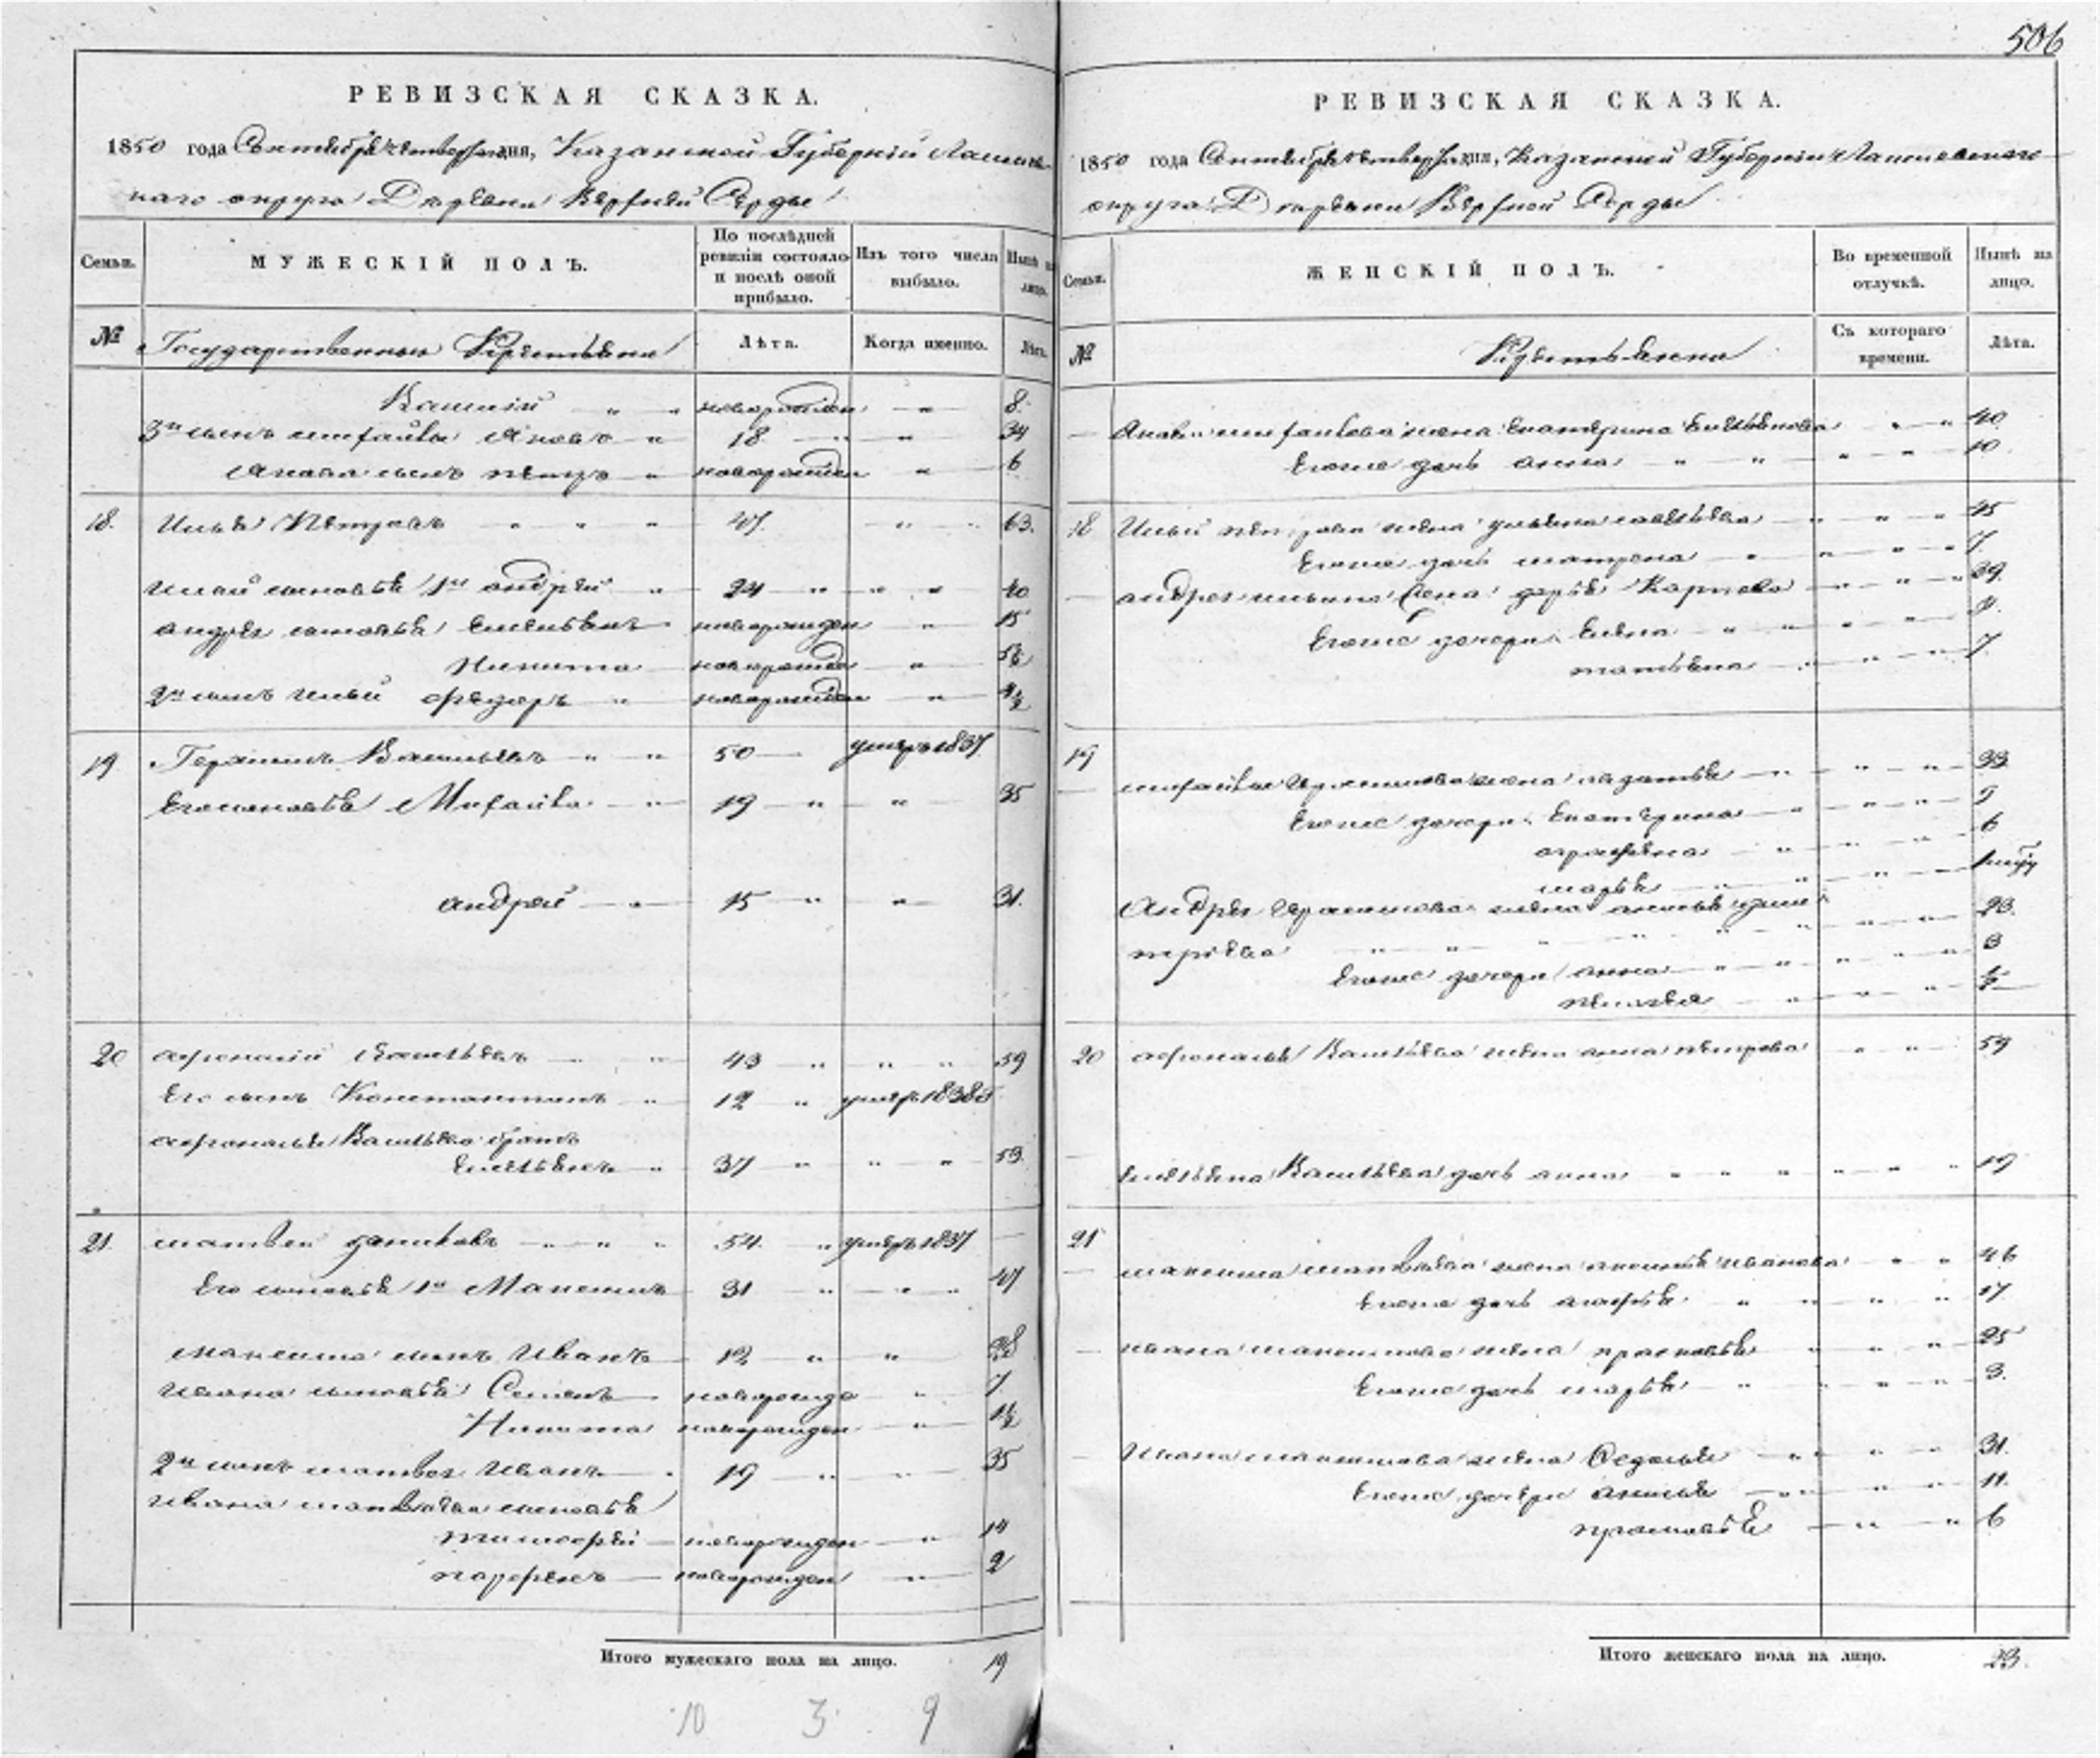 506
РЕВИЗСКАЯ СКАЗКА.
1850 года Сентября четвертаго дня, Казанской Губерніи Лаишев-
скаго округа Деревни Верхней Серды
Семьи.
МУЖЕСКІЙ ПОЛЪ.
По послѣдней ревизіи состояло и послѣ оной прибыло.
Изъ того числа выбыло.
Нынѣ на лицо.
№
Государственные Крестьяне
Лѣта.
Когда именно.
Лѣта.
Василій " " новорожден " 8.
3й сынъ Михайла Яковъ " 18 " " 34
Якова сынъ Петръ " новорожден " 6
18. Илья Петровъ " " " 47. " " 63.
Ильи сыновья 1й Андрей " 24 " " " 40
Андрея сыновья Емельянъ новорожден " 15
Никита новорожде " 5½
2й сынъ Ильи Федоръ " новорожден " 4½
19 Герасимъ Васильевъ " " 50 умеръ 1837.
Его сыновья Михайла " 19 " " 35
Андрей " 15 " " 31.
20 Афонасій Васильевъ " " 43 " " " 59
Его сынъ Константинъ " 12 " умеръ 1838
Афонасья Васильева братъ
Емельянъ " 37 " " " 53.
21. Матвей Даниловъ " " " 54. " умеръ 1837
Его сыновья 1й Максимъ 31 " " " 47
Максима сынъ Иванъ 12 " " 28
Ивана сыновья Семенъ новорожде " 7.
Никита новорожден " 1½
2й сынъ Матвея Иванъ " 19 " " 35
Ивана Матвеева сыновья
Тимофей новорожден " 14
Парфенъ новорожден " 2
Итого мужескаго пола на лицо. 19
10 3 9
РЕВИЗСКАЯ СКАЗКА.
1850 года Сентября четвертаго дня, Казанской Губерніи Лаишевскаго
округа Деревни Верхней Серды
Семьи.
ЖЕНСКІЙ ПОЛЪ.
Во временной отлучкѣ.
Нынѣ на лицо.
№
Крестьянки
Съ котораго времени.
Лѣта.
Якова Михайлова жена Екатерина Емельянова " " 40.
Егоже дочь Анна " " " " 10.
18 Ильи Петрова жена Ульяна Савельева " " " 45
Егоже дочь Матрена " " " " 7.
Андрея Ильина жена Дарья Карпова " " " 39.
Егоже дочери Елена " " " "
Татьяна " " " 7.
19
Михайлы Герасимова жена " " " 33
Егоже дочери Екатерина " " " 9
Аграфена " " " " 6
Марья " " " "
Андрея Герасимова жена Анисья Дми-
тріева " " " " " " " 23.
Егоже дочери Анна " " " " 3
Пелагея " " " ½
20 Афонасья Васильева жена Анна Петрова " " 59
Емельяна Васильева дочь Анна " " " " " " 19
21
Максима Матвеева жена Аксинья Иванова " " 46
Егоже дочь Агафья " " " " 17
Ивана Максимова жена Прасковья " " " 25
Егоже дочь Марья " " " " 3.
Ивана жена Федосья " " " 31.
Егоже дочери Анисья " " " 11.
Прасковья " " 6
Итого женскаго пола на лицо. 23.